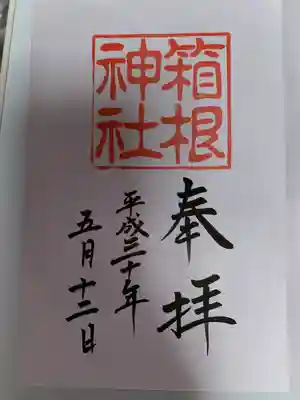 箱根
神社
奉拝
平成三十年
五月十二日